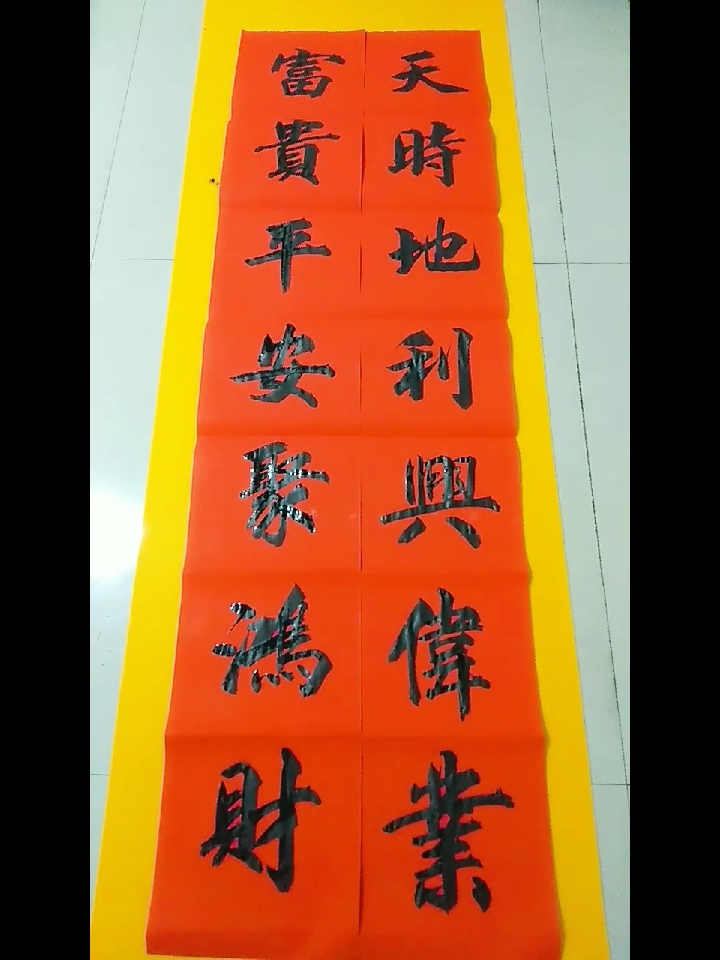 天時地利興偉業
富貴平安聚鴻財